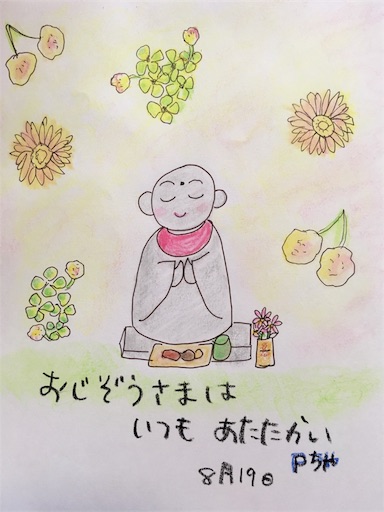 おじぞうさまは
いつも あたたかい
Pちゃ
8月19日